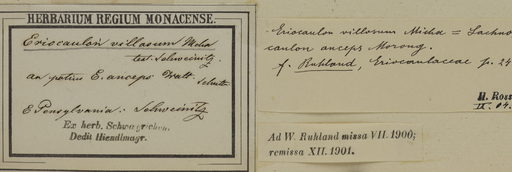 HERBARIUM REGIUM MONACENSE.
Eriocaulon villosum Micha
test. Schweinitz.
an potius E. anceps Walt.
E Pensylvania: Schweinitz
Ex herb. Schwaegrichen.
Dedit Hiendlmayr.
Eriocaulon villosum Micha = Lachno
caulon anceps Morong.
f. Ruhland, Eriocaulaceae p. 24
H. Ross
IX. 04.
Ad W. Ruhland missa VII. 1900;
remissa XII. 1901.